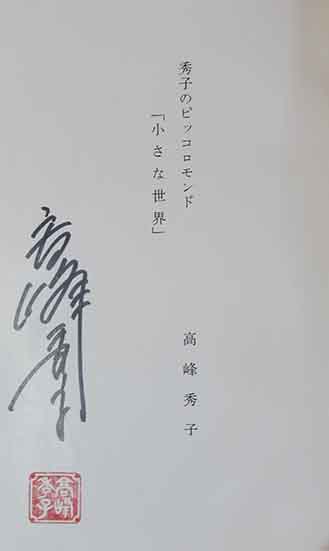 秀子のピッコロモンド
「小さな世界」
高峰秀子
高峰秀子
高峰秀子